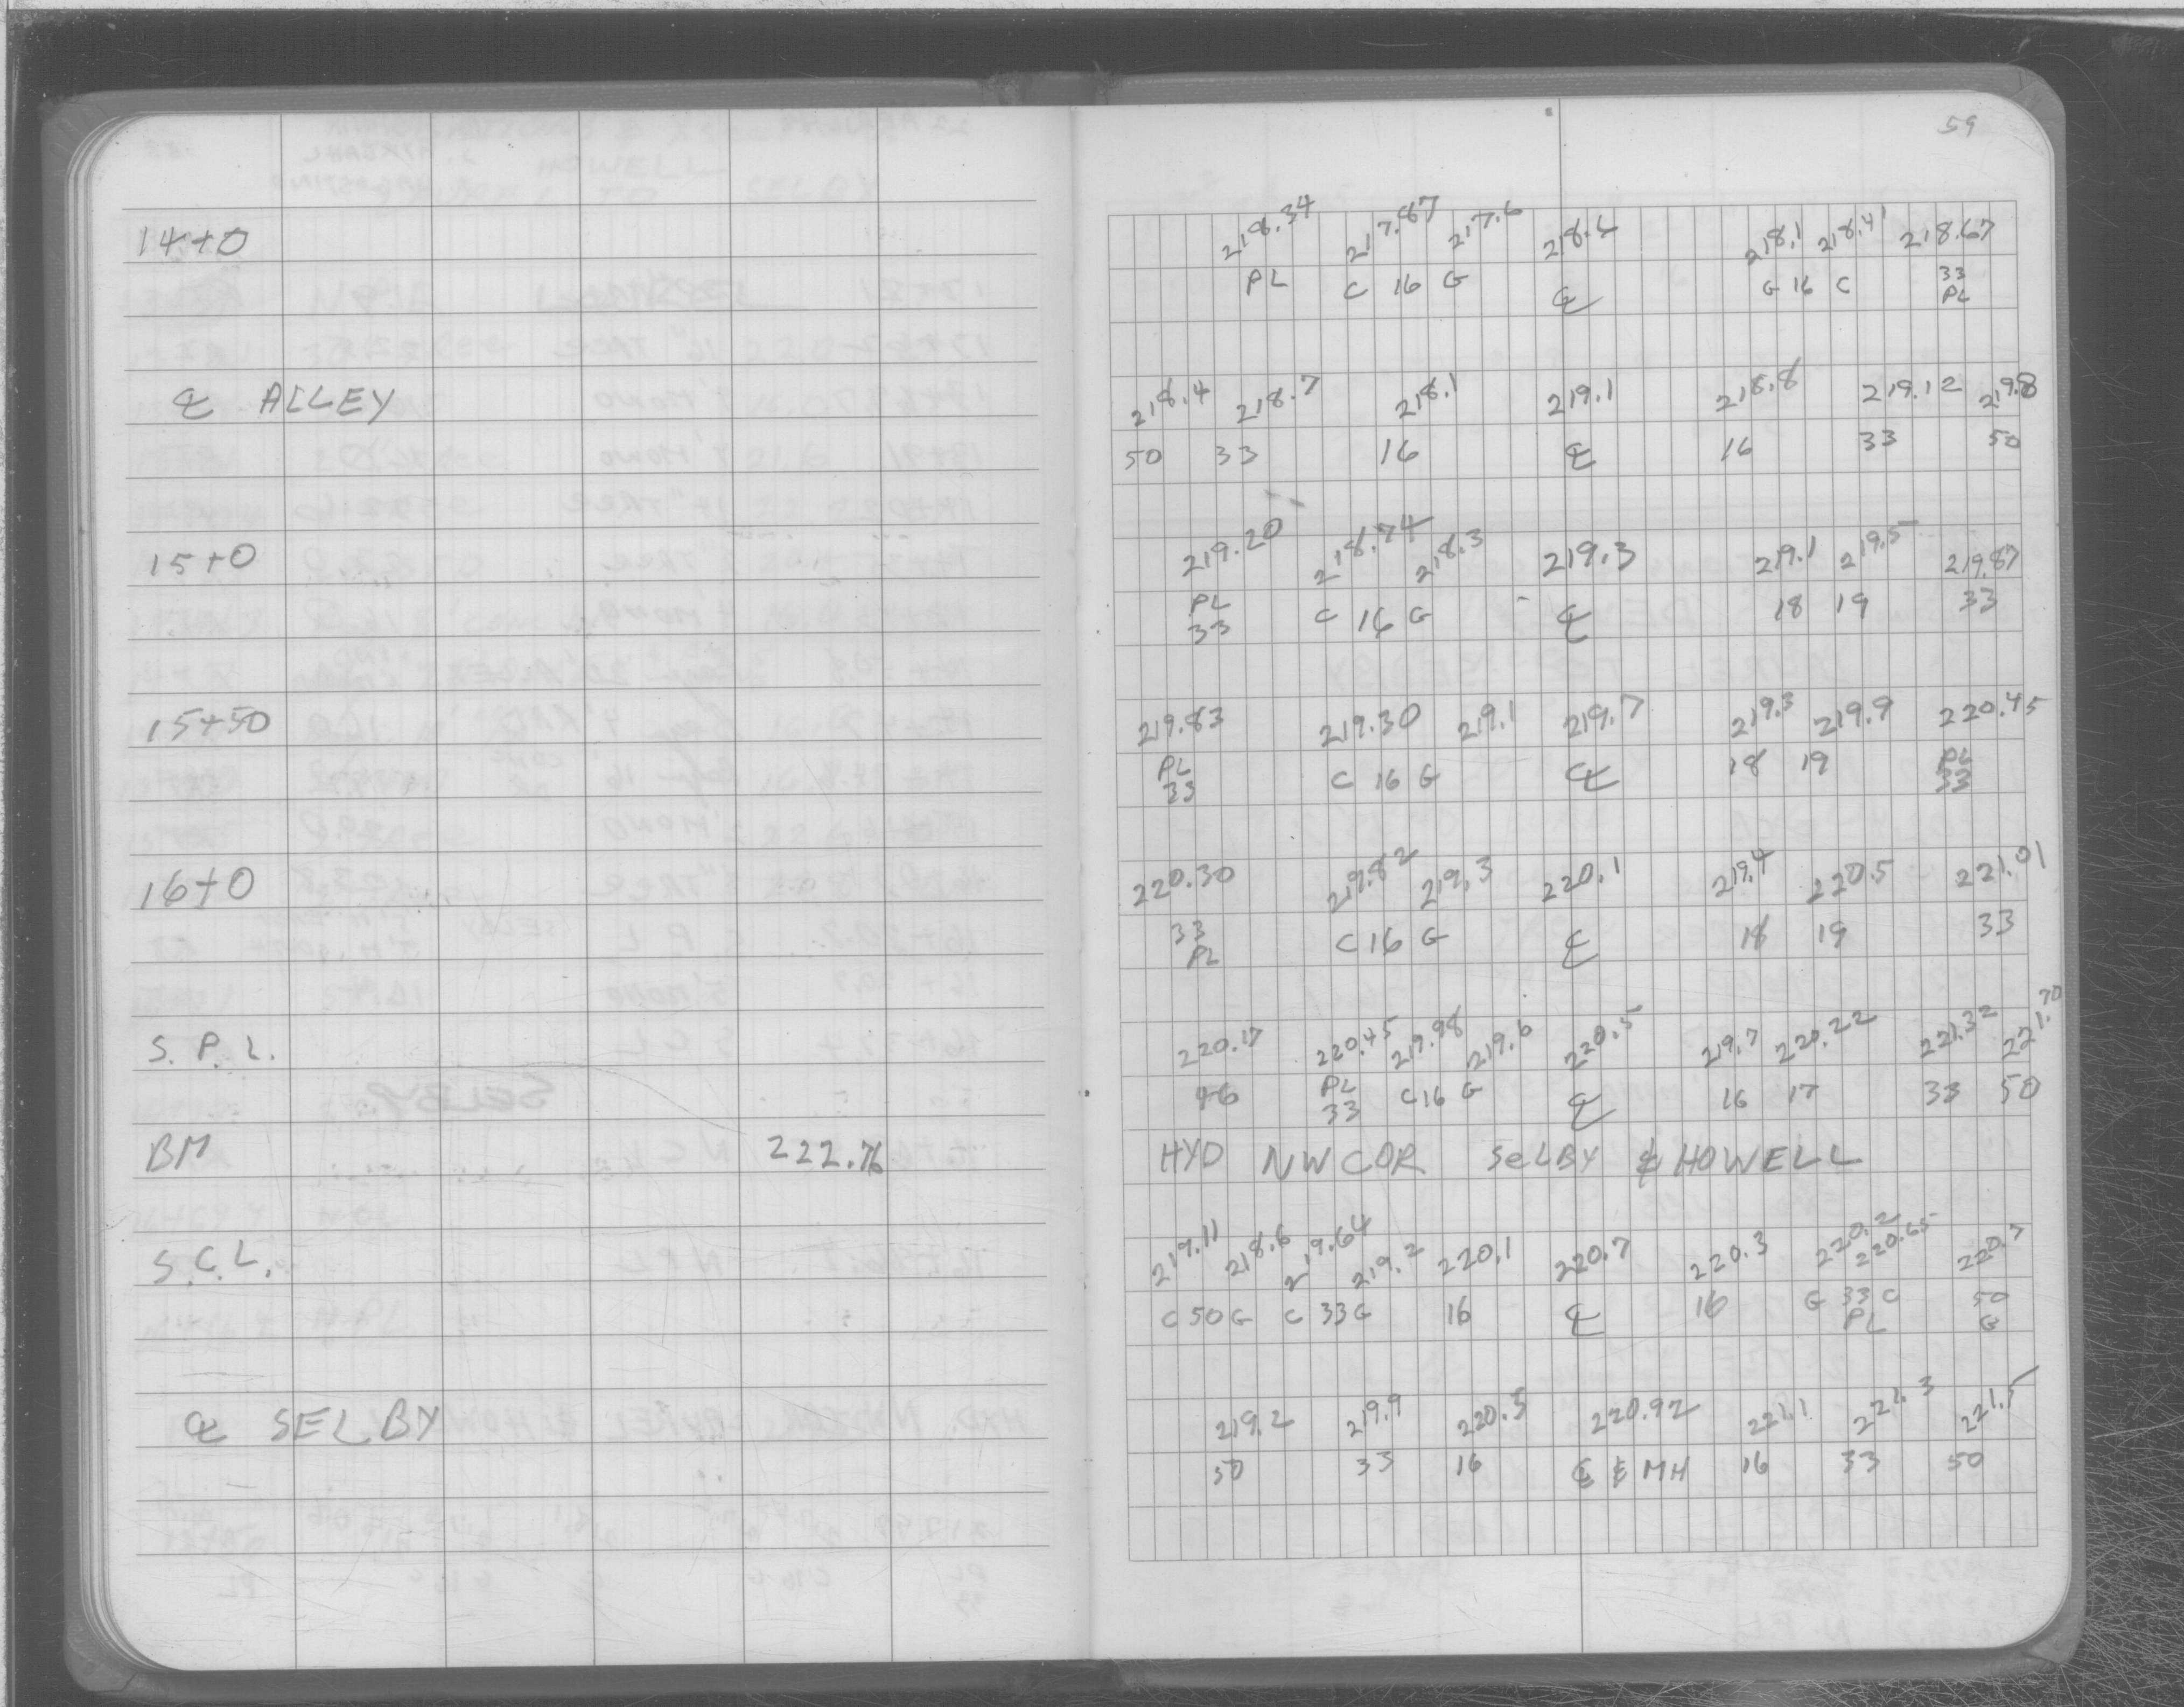 59
14+0 218.34 217.87 217.6 218.6 218.1 218.41 218.67
PL C 16 G ℄ G 16 C 33
PL
℄ ALLEY 218.4 218.7 218.1 219.1 218.8 219.12 219.8
50 33 16 ℄ 16 33 50
15+0 219.20 218.74 218.3 219.3 219.1 219.5 219.87
PL C 16 G ℄ 18 19 33
33
15+50 219.83 219.30 219.1 219.7 219.3 219.9 220.45
PL C 16 G ℄ 18 19 PL
33 33
16+0 220.30 219.82 219.3 220.1 219.4 220.5 221.01
33 C 16 G ℄ 18 19 33
PL
S.P.L. 220.17 220.45 219.98 219.6 220.5 219.7 220.22 221.32 221.70
46 PL C 16 G ℄ 16 17 33 50
33
BM 222.76 HYD NW COR SELBY & HOWELL
S.C.L. 219.11 218.6 219.64 219.2 220.1 220.7 220.3 220.2 220.65 220.7
C 50 G C 33 G 16 ℄ 16 G 33 C 50
PL G
℄ SELBY 219.2 219.9 220.5 220.92 221.1 221.3 221.5
50 33 16 ℄ & MH 16 33 50